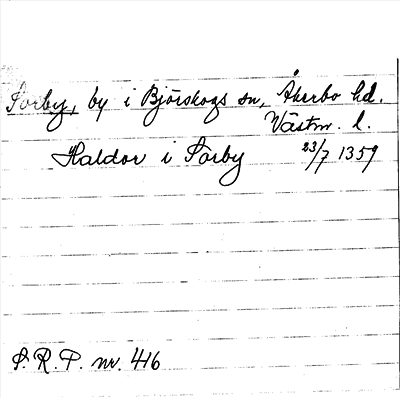 Sörby, by i Björskogs sn, Åkerbo hd.
Västm. l.
Haldor i Sörby 23/7 1359
S.R.P. nr. 416